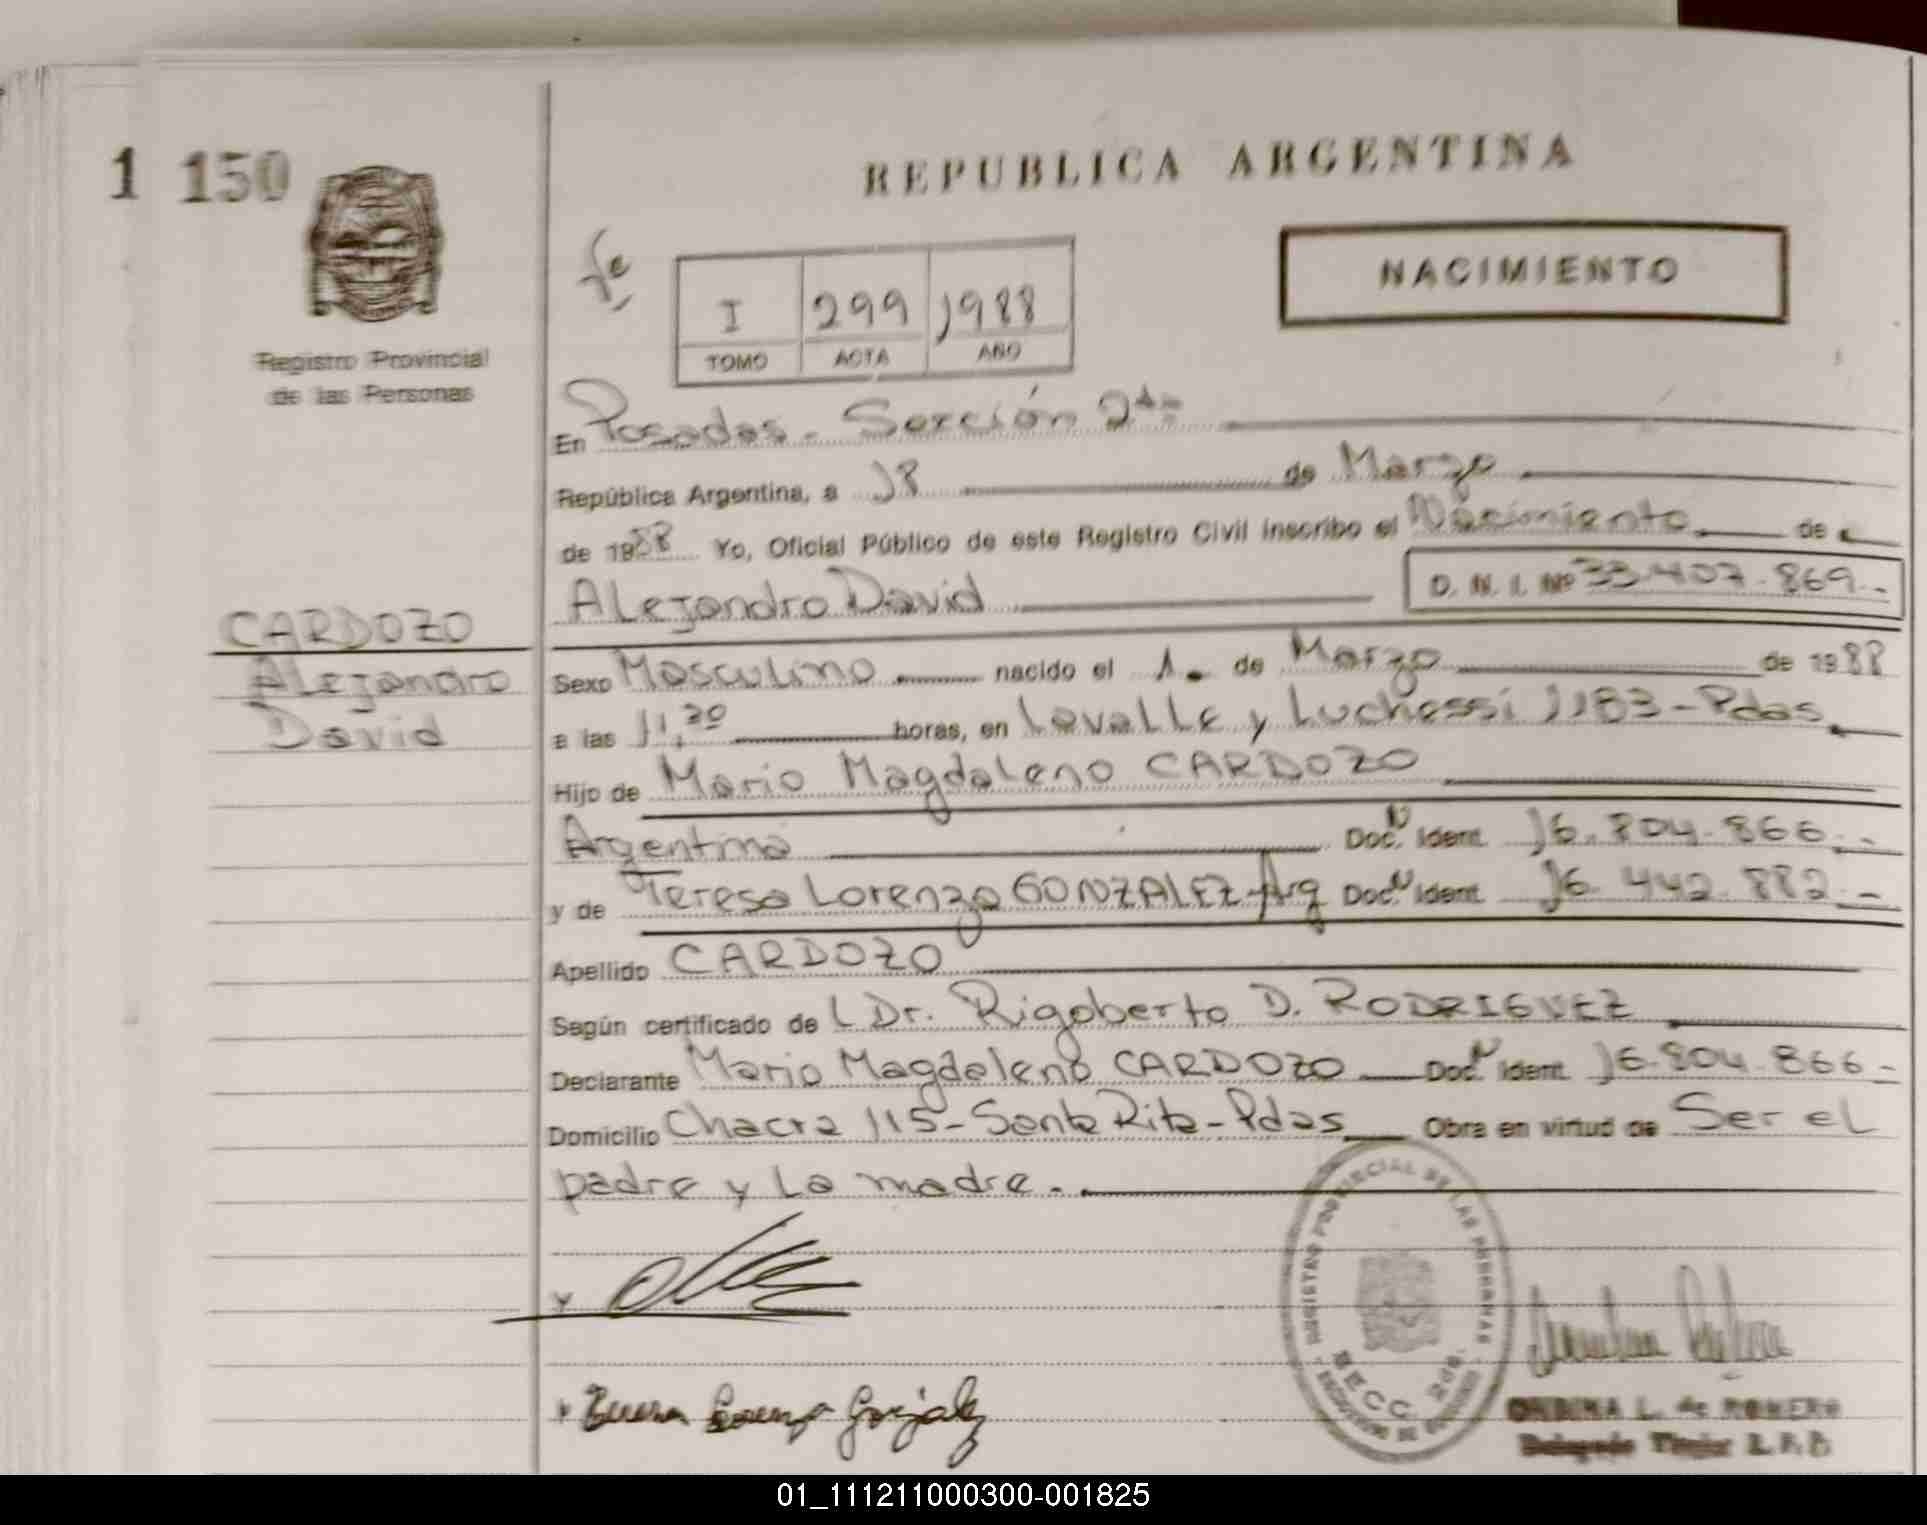 1 150
REPUBLICA ARGENTINA
NACIMIENTO
I 299 1988
TOMO ACTA AÑO
Registro Provincial
de las Personas
En Posadas - Sección 2da
República Argentina, a 18 de Marzo
de 1988 Yo, Oficial Público de este Registro Civil inscribo el Nacimiento de
Alejandro David D. N. I. Nº 33.407.869.-
CARDOZO
Alejandro
David
Sexo Masculino nacido el 1. de Marzo de 1988
a las 11,30 horas, en Lavalle y Luchessi 1183-Pdas.
Hijo de Mario Magdaleno CARDOZO
Argentina Doc. N Ident. 16.804.866.-
y de Teresa Lorenza GONZALEZ-Arg Doc. N Ident. 16.442.882.-
Apellido CARDOZO
Según certificado de L Dr. Rigoberto D. RODRIGUEZ
Declarante Mario Magdaleno CARDOZO Doc. N Ident. 16.804.866-
Domicilio Chacra 115-Santa Rita-Pdas Obra en virtud de Ser el
padre y La madre.
REGISTRO PROVINCIAL DE LAS PERSONAS
SECC. 2da.
ONDINA L. de ROMERO
Delegado Titular R. P. P.
01_111211000300-001825